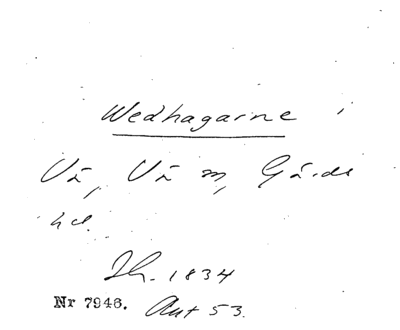 Wedhagarne
Vä, Vä m, Gärds
hd.
Ih. 1834
Nr 7946. Ant 53.